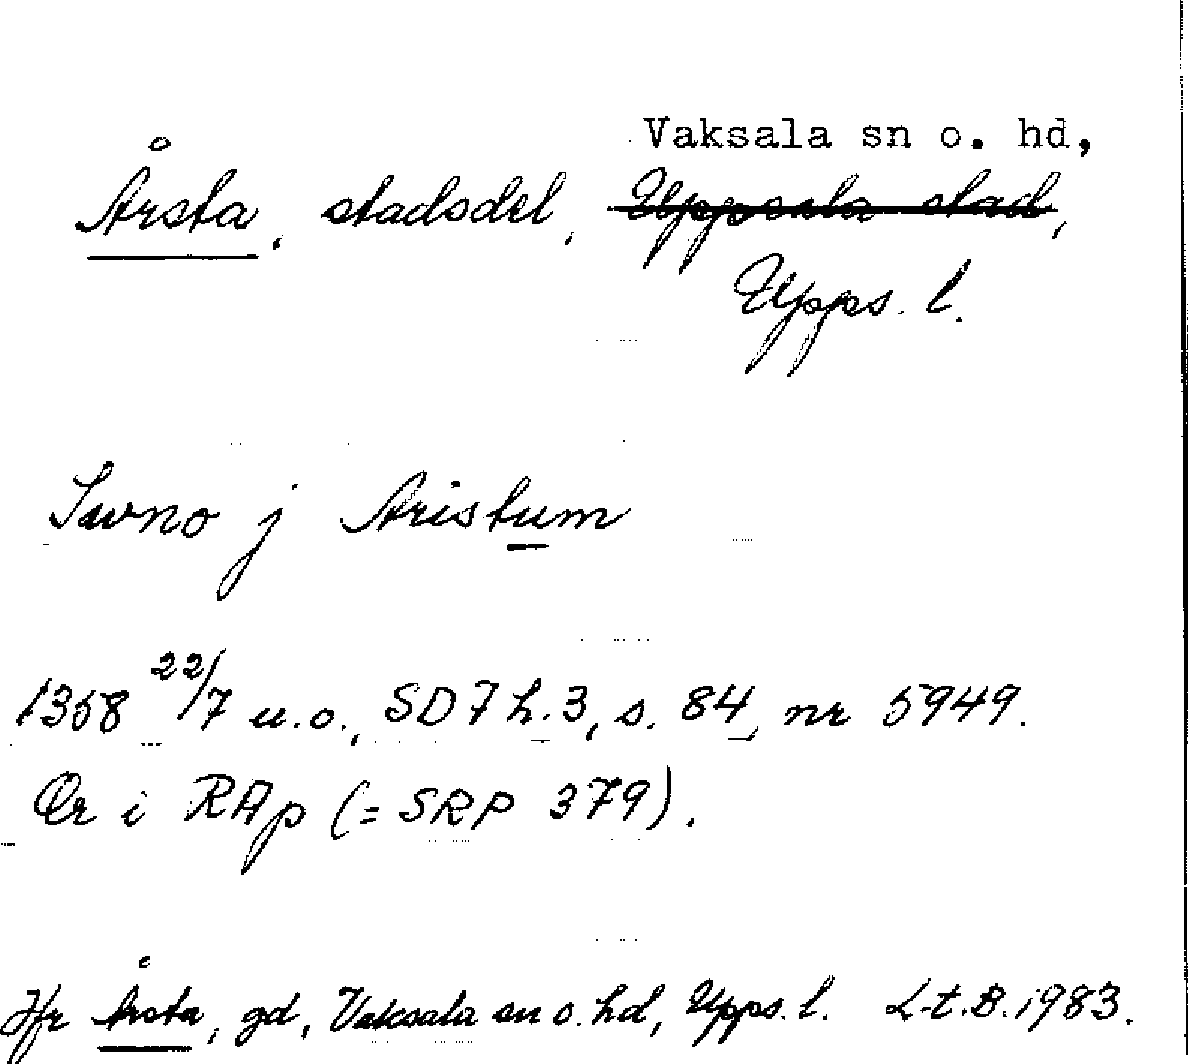 Vaksala sn o. hd,
Årsta, stadsdel, Uppsala stad,
Upps. l.
Swno j Aristum
1358 22/7 u.o., SD 7 h. 3, s. 84, nr 5949.
Or i RAp (= SRP 379).
Jfr Årsta, gd, Vaksala sn o. hd, Upps. l. L-t.B. 1983.